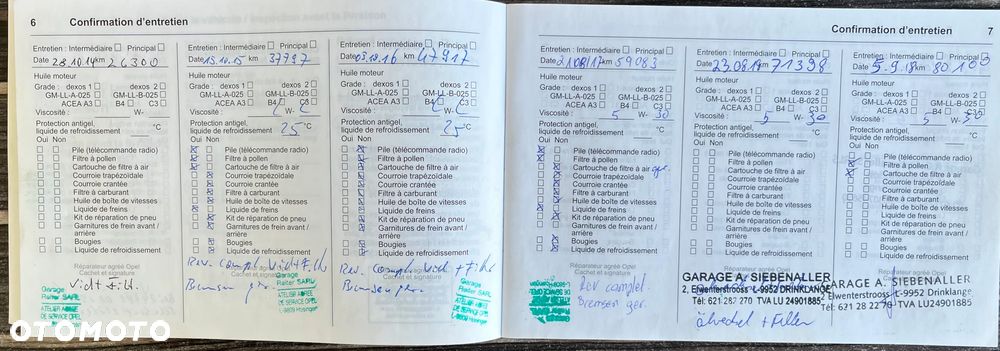 6 Confirmation d'entretien
Entretien : Intermédiaire Principal
Date 28.10.14 km 26300
Huile moteur
Grade : dexos 1 dexos 2
GM-LL-A-025 GM-LL-B-025
ACEA A3 B4 C3
Viscosité : W-
Protection antigel,
liquide de refroidissement °C
Oui Non
Pile (télécommande radio)
Filtre à pollen
Cartouche de filtre à air
Courroie trapézoïdale
Courroie crantée
Filtre à carburant
Huile de boîte de vitesses
Liquide de freins
Kit de réparation de pneu
Garnitures de frein avant /
arrière
Bougies
Liquide de refroidissement
Réparateur agréé Opel
Cachet et signature
Garage
Reiter SARL
ATELIER AGRÉÉ
DE SERVICE OPEL
Entretien : Intermédiaire Principal
Date 15.10.15 km 37797
Huile moteur
Grade : dexos 1 dexos 2
GM-LL-A-025 GM-LL-B-025
ACEA A3 B4 C3
Viscosité : W-
Protection antigel,
liquide de refroidissement 25 °C
Oui Non
Pile (télécommande radio)
Filtre à pollen
Cartouche de filtre à air
Courroie trapézoïdale
Courroie crantée
Filtre à carburant
Huile de boîte de vitesses
Liquide de freins
Kit de réparation de pneu
Garnitures de frein avant /
arrière
Bougies
Liquide de refroidissement
Réparateur agréé Opel
Cachet et signature
Garage
Reiter SARL
ATELIER AGRÉÉ
DE SERVICE OPEL
Entretien : Intermédiaire Principal
Date 03.10.16 km 47917
Huile moteur
Grade : dexos 1 dexos 2
GM-LL-A-025 GM-LL-B-025
ACEA A3 B4 C3
Viscosité : W-
Protection antigel,
liquide de refroidissement 25 °C
Oui Non
Pile (télécommande radio)
Filtre à pollen
Cartouche de filtre à air
Courroie trapézoïdale
Courroie crantée
Filtre à carburant
Huile de boîte de vitesses
Liquide de freins
Kit de réparation de pneu
Garnitures de frein avant /
arrière
Bougies
Liquide de refroidissement
Garage
Reiter SARL
ATELIER AGRÉÉ
DE SERVICE OPEL
Confirmation d'entretien 7
Entretien : Intermédiaire Principal
Date km 59083
Huile moteur
Grade : dexos 1 dexos 2
GM-LL-A-025 GM-LL-B-025
ACEA A3 B4 C3
Viscosité : 5 W- 30
Protection antigel,
liquide de refroidissement °C
Oui Non
Pile (télécommande radio)
Filtre à pollen
Cartouche de filtre à air
Courroie trapézoïdale
Courroie crantée
Filtre à carburant
Huile de boîte de vitesses
Liquide de freins
Kit de réparation de pneu
Garnitures de frein avant /
arrière
Bougies
Liquide de refroidissement
Réparateur agréé Opel
Cachet et signature
Rev complet.
Bremsen ger.
Entretien : Intermédiaire Principal
Date km 71398
Huile moteur
Grade : dexos 1 dexos 2
GM-LL-A-025 GM-LL-B-025
ACEA A3 B4 C3
Viscosité : 5 W- 30
Protection antigel,
liquide de refroidissement °C
Oui Non
Pile (télécommande radio)
Filtre à pollen
Cartouche de filtre à air
Courroie trapézoïdale
Courroie crantée
Filtre à carburant
Huile de boîte de vitesses
Liquide de freins
Kit de réparation de pneu
Garnitures de frein avant /
arrière
Bougies
Liquide de refroidissement
GARAGE A. SIEBENALLER
2, Elwenterstrooss L-9952 DRINKLANGE
Tél: 621 282 270 TVA LU 24901885
Entretien : Intermédiaire Principal
Date 5.9.18 km
Huile moteur
Grade : dexos 1 dexos 2
GM-LL-A-025 GM-LL-B-025
ACEA A3 B4
Viscosité : 5 W-
Protection antigel,
liquide de refroidissement °C
Oui Non
Pile (télécommande radio)
Filtre à pollen
Cartouche de filtre à air
Courroie trapézoïdale
Courroie crantée
Filtre à carburant
Huile de boîte de vitesses
Liquide de freins
Kit de réparation de pneu
Garnitures de frein avant /
arrière
Bougies
Liquide de refroidissement
GARAGE A. SIEBENALLER
Elwenterstrooss L-9952 Drinklange
Tél: 621 28 22 70 TVA LU24901885
OTOMOTO